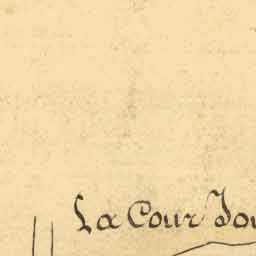 La Cour Jou